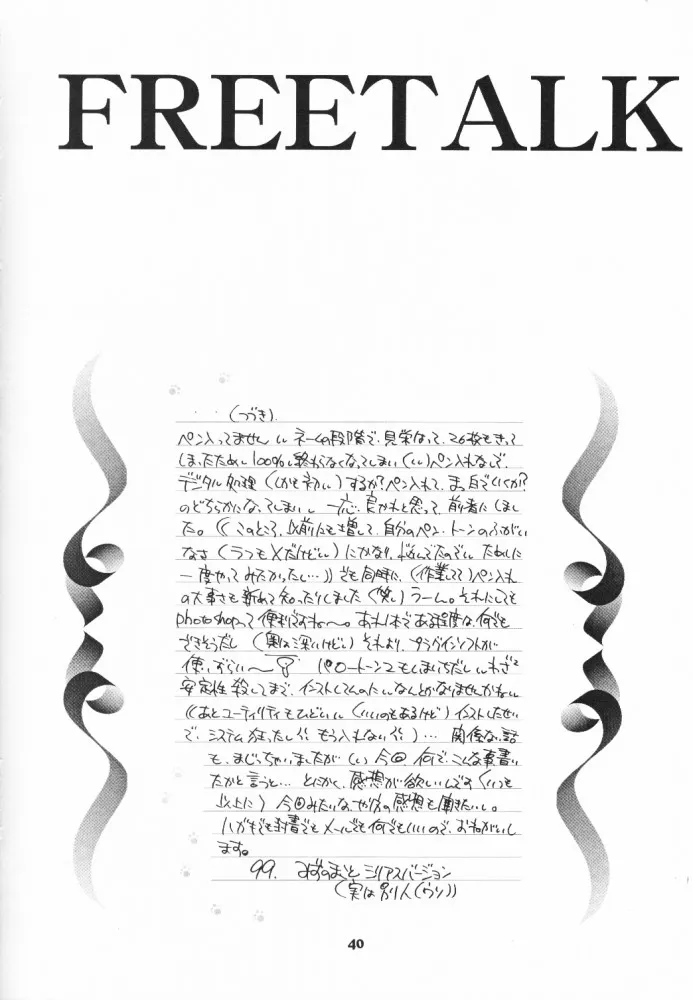 FREETALK
(つづき).
ペン入ってません ネームの段階で、見栄はって、26枚もきって
しまったため 100%終わらなくなってしまい ペン入れなしで、
デジタル処理(しかも初)するか?ペン入れて、まっ白でいくか?
のどちらかになってしまい 一応、良かれと思って、前者にしまし
た。((このところ、以前にも増して、自分のペン、トーンのふがい
なさ(ラフもXだけど)にかなり、悩んでたので ために
一度やってみたかったし…))でも同時に、(作業してて)ペン入れ
の大事さも新めて知ったりしました(笑)うーん。それにしても
photoshopって便利ですね〜。あれ1本である程度は何でも
できそうだし(奥は深いけど)それより、プラグインソフトが
使いづらい〜 パワートーン2もしまいちだし わざと
安定性殺してまで、インストしてんのに なんとかなりませんかね
((あとユーティリティもひどい(いいのもあるけど)インストしたせい
で、システム狂ったし もう入れない)… 関係ない話
も、まじっちゃいましたが 今回 何で、こんな事書い
たかと言うと… とにかく、感想が欲しいんです(いつも
以上に)今回みたいな、やり方の感想も聞きたいし。
ハガキでも封書でもメールでも何でもいいので、おねがいし
ます。
99. みずのまこと シリアスバージョン
(実は別人(ウソ))
40